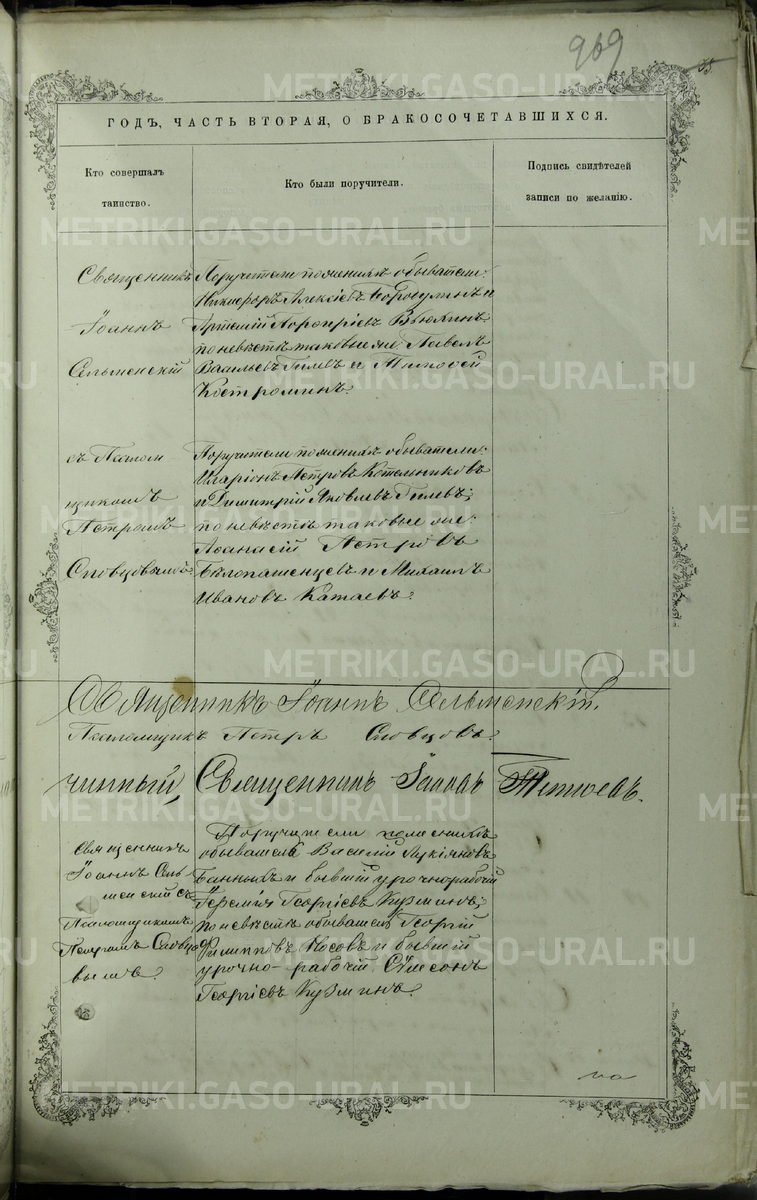 969
ГОДЪ, ЧАСТЬ ВТОРАЯ, О БРАКОСОЧЕТАВШИХСЯ.
Кто совершалъ
таинство.
Кто были поручители.
Подпись свидѣтелей
записи по желанію.
Священникъ
Іоаннъ
Сельменскій
Поручители по женихѣ обыватели:
Никифоръ Алексіевъ и
Артемій Порфиріевъ Вьюхинъ,
по невѣстѣ таковые же: Павелъ
Васильевъ Гилевъ и Тимофей
Костроминъ.
съ Псалом
щикомъ
Петромъ
Словцовымъ
Поручители по женихѣ обыватели:
Иларіонъ Петровъ Котельниковъ
и Димитрій Яковлевъ Гилевъ;
по невѣстѣ таковые же:
Аѳанасій Петровъ
Бѣлопашенцевъ и Михаилъ
Ивановъ Катаевъ.
Священникъ Іоаннъ Сельменскій.
Псаломщикъ Петръ Словцовъ.
чинный, Священникъ
Священникъ
Іоаннъ Сель
менскій съ
Псаломщикомъ
Петромъ Словцо
вымъ.
Поручители по женихѣ
обыватель Василій Лукіяновъ
Банныхъ и бывшій урочнорабочій
Іеремія Георгіевъ Кузминъ;
по невѣстѣ обыватель Георгій
Филипповъ Носовъ и бывшій
урочно-рабочій Сѵмеонъ
Георгіевъ Кузминъ.
METRIKI.GASO-URAL.RU